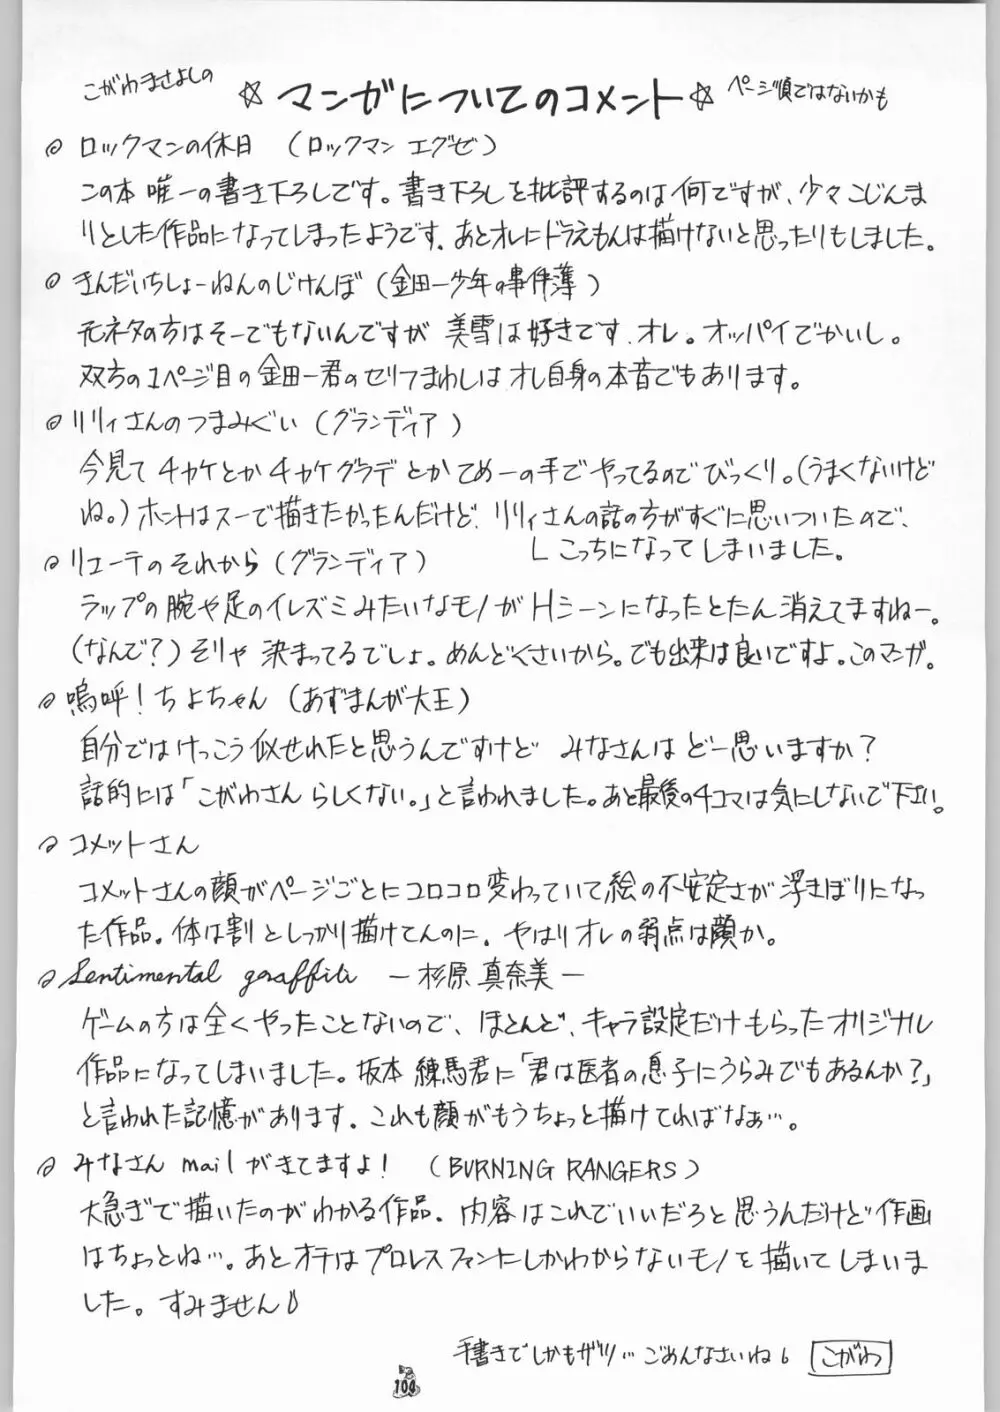 こがわまさよしの
☆マンガについてのコメント☆
ページ順ではないかも
ロックマンの休日 (ロックマン エグゼ)
この本 唯一の書き下ろしです。書き下ろしを批評するのは何ですが、少々こじんま
りとした作品になってしまったようです。あとオレにドラえもんは描けないと思ったりもしました。
きんだいちしょーねんのじけんぼ (金田一少年の事件薄)
元ネタの方はそーでもないんですが 美雪は好きです、オレ。オッパイでかいし。
双方の1ページ目の金田一君のセリフまわしはオレ自身の本音でもあります。
リリィさんのつまみぐい (グランディア)
今見て チカケとか チカケグラデ とか てめーの手で やってるので びっくり。(うまくないけど
ね。) ホントはスーで描きたかったんだけど、リリィさんの話の方がすぐに思いついたので、
こっちになってしまいました。
リエーテのそれから (グランディア)
ラップの腕や足のイレズミみたいなモノがHシーンになったとたん消えてますねー。
(なんで?) そりゃ 決まってるでしょ。めんどくさいから。でも出来は良いですよ。このマンガ。
嗚呼!ちよちゃん (あずまんが大王)
自分ではけっこう似せれたと思うんですけど みなさんはどー思いますか?
話的には「こがわさんらしくない。」と言われました。あと最後の4コマは気にしないで下さい。
コメットさん
コメットさんの顔がページごとにコロコロ変わっていて絵の不安定さが浮きぼりになっ
た作品。体は割としっかり描けてんのに。やはりオレの弱点は顔か。
Sentimental graffiti ―杉原 真奈美―
ゲームの方は全くやったことないので、ほとんど、キャラ設定だけもらったオリジナル
作品になってしまいました。坂本 練馬君に「君は医者の息子にうらみでもあるんか?」
と言われた記憶があります。これも顔がもうちょっと描けてればなぁ…。
みなさん mailがきてますよ! (BURNING RANGERS)
大急ぎで描いたのがわかる作品。内容はこれでいいだろと思うんだけど作画
はちょっとね…。あとオチはプロレスファンにしかわからないモノを描いてしまいま
した。すみません
手書きでしかもザツ…ごめんなさいね
こがわ
104